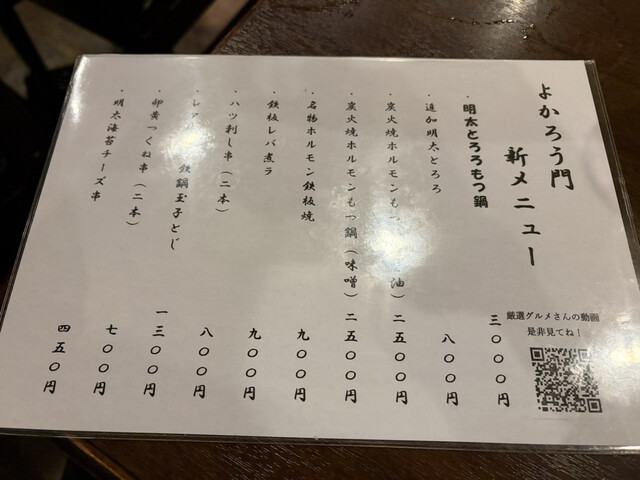 よかろう門
新メニュー
厳選グルメさんの動画
是非見てね！
・明太とろろもつ鍋 三〇〇〇円
・追加明太とろろ 八〇〇円
・炭火焼ホルモンもつ 油） 二五〇〇円
・炭火焼ホルモンもつ鍋（味噌） 二五〇〇円
・名物ホルモン鉄板焼 九〇〇円
・鉄板レバ煮ラ 九〇〇円
・ハツ刺し串（二本） 八〇〇円
・レア 鉄鍋玉子とじ 一三〇〇円
・卵黄つくね串（二本） 七〇〇円
・明太海苔チーズ串 四五〇円